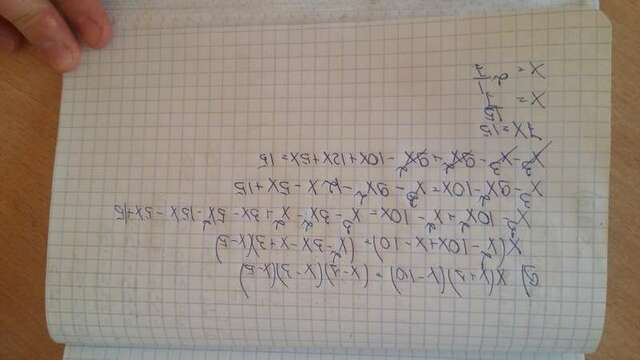 д) x(x+1)(x-10)=(x-1)(x-3)(x-5)
x(x²-10x+x-10)=(x²-3x-x+3)(x-5)
x³-10x²+x²-10x=x³-3x²-x²+3x-5x²-15x-5x+15
x³-9x²-10x=x³-9x²-12x-5x+15
x³-x³-9x²+9x²-10x+12x+5x=15
7x=15
x=15/7
x=2 1/7